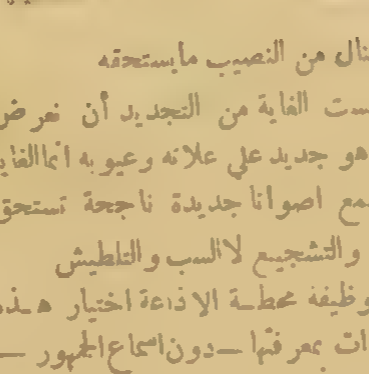 نال من النصيب مايستحقه
ست الغاية من التجديد أن نعرض
هو جديد علي علاته وعيوبه انما الغاية
مع اصواتا جديدة ناجحة تستحق
والتشجيع لاالسب والتلطيش
وظيفة محطة الاذاعة اختيار هذه
ات بمعرفتها — دون اسماع الجمهور —